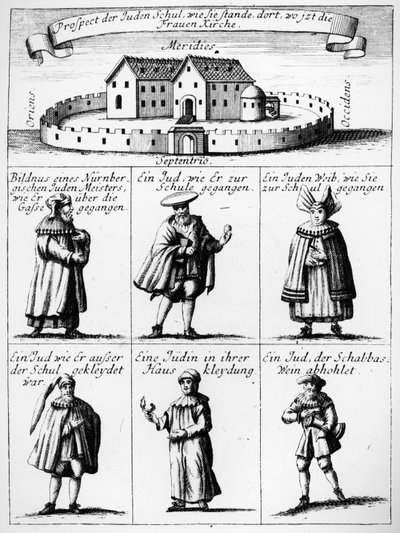 Prospect der Juden Schul, wie Sie stande, dort, wo jzt die
Frauen Kirche.
Meridies.
Oriens.
Occidens.
Septentrio.
Bildnus eines Nürnber
gischen Juden Meisters,
wie Er über die
Gasse gegangen.
Ein Jud, wie Er zur
Schule gegangen.
Ein Juden Weib, wie Sie
zur Schul gegangen.
Ein Jud wie Er ausser
der Schul gekleydet
war.
Eine Jüdin in ihrer
Haus kleydung.
Ein Jud, der Schabbas-
Wein abhohlet.